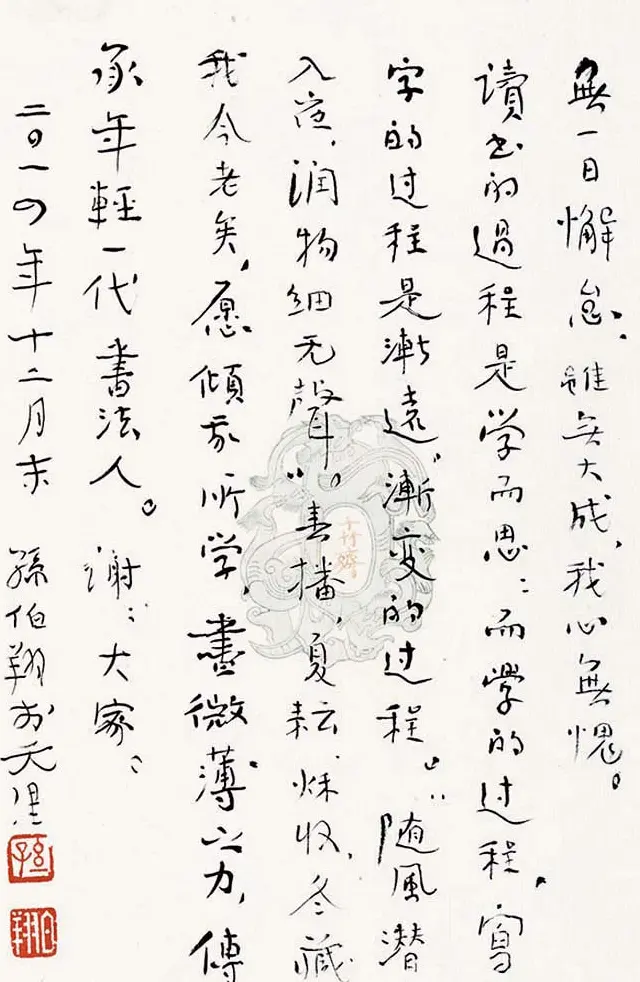 無一日懈怠,雖无大成,我心無愧。
讀书的過程是学而思:而學的过程,寫
字的过程是漸遠”漸变的过程。”:随風潜
入夜,润物细无聲”。春播,夏耘,秌收,冬藏
我今老矣,愿傾我所学,盡微薄之力,傳
承年輕一代書法人。谢:大家:
二〇一四年十二月末 孫伯翔于天津
孫
伯翔